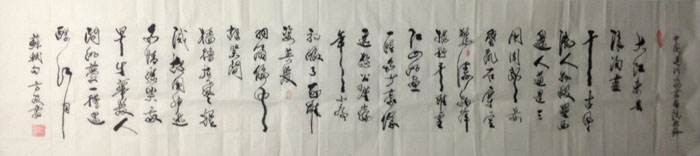 大江東去
浪淘盡
千古風
流人物故壘西
邊人道是三
國周郎赤
壁亂石穿空
驚濤拍岸
捲起千堆雪
江山如畫
一時多少豪傑
遙想公瑾當
年小喬
初嫁了雄
姿英發
羽扇綸巾
談笑間
檣櫓灰飛煙
滅故國神遊
多情應笑我
早生華髮人
間如夢一樽還
酹江月
蘇軾句